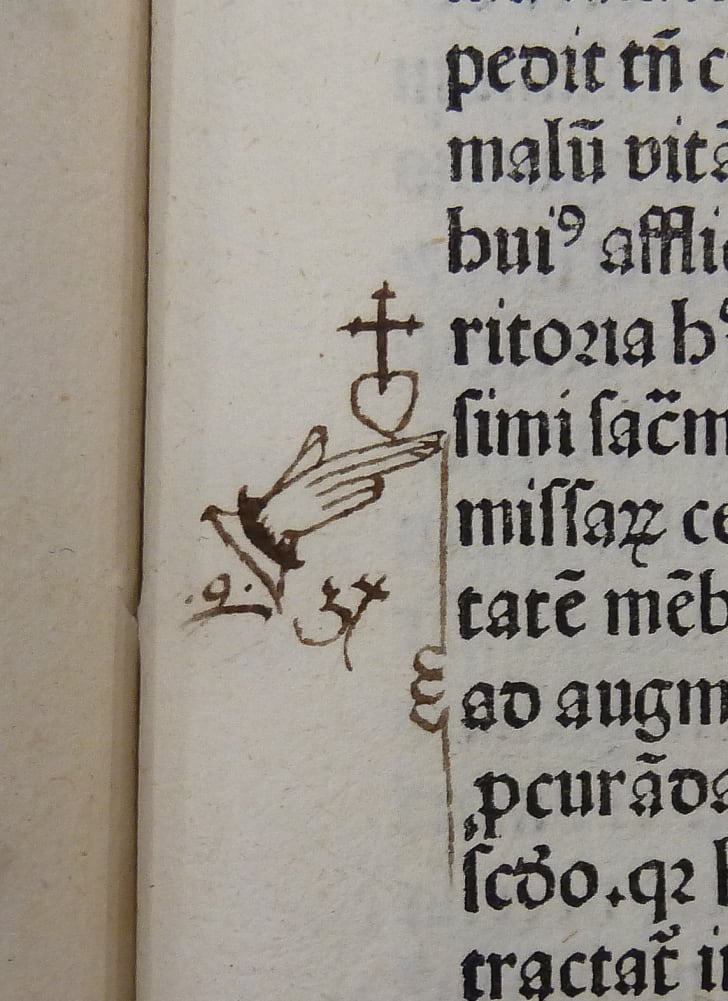 pedit tn̄ c
malū vitā
buiꝰ affli
ritoꝛia h
ſimi ſac̄m
miſſaꝝ ce
tatē mēb
ad augm
ꝓcurāda
ſcd̄o.qꝛ
tractat̄ i